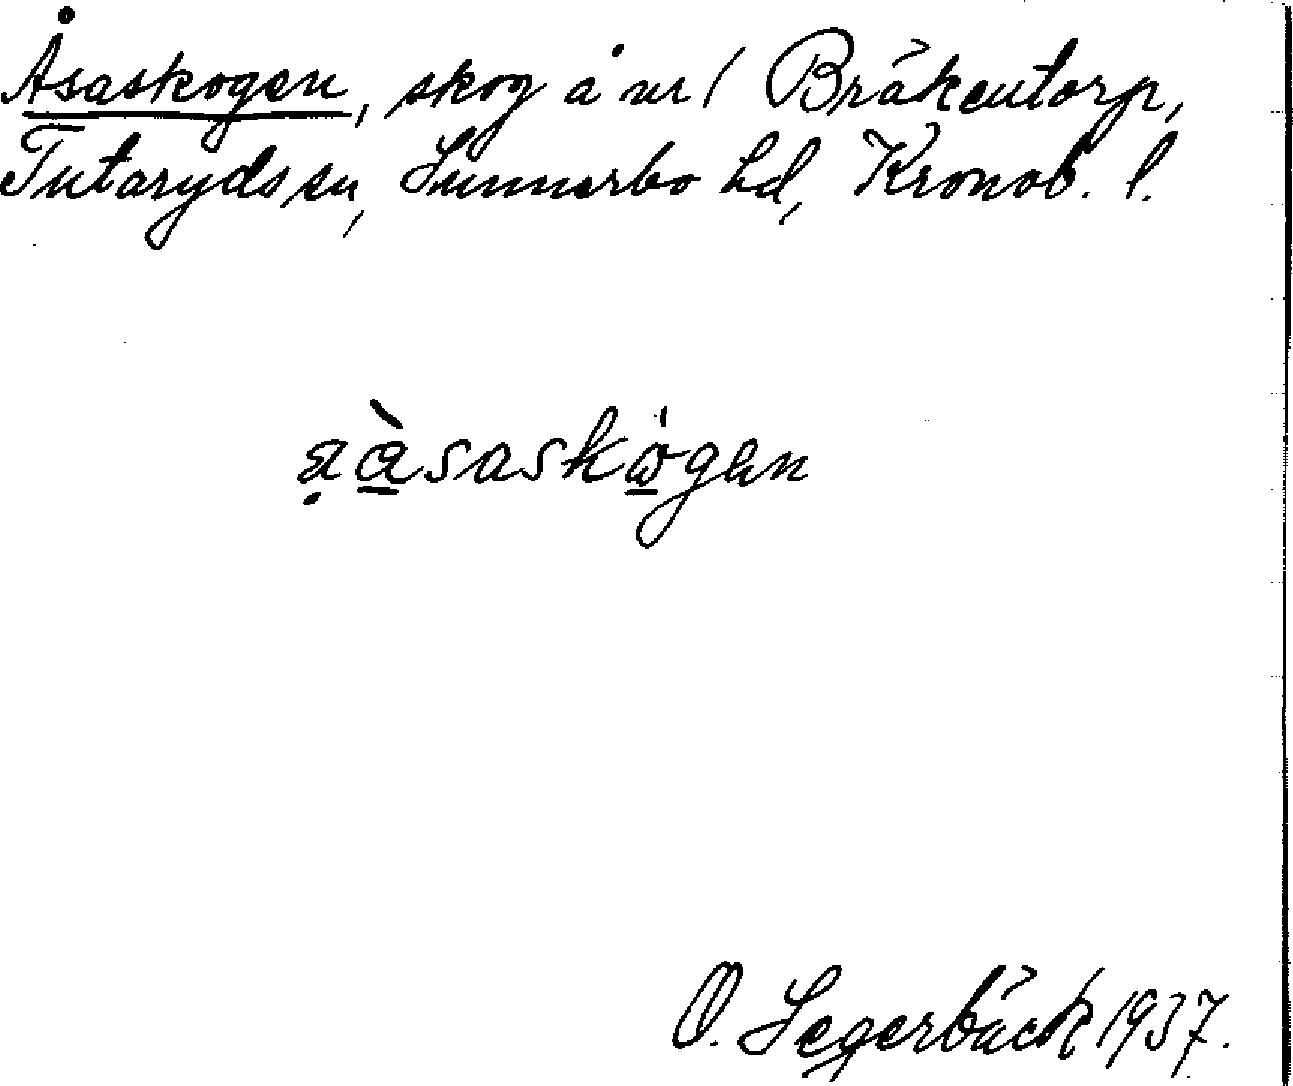 Åsaskogen, skog å nr 1 Bräkentorp,
Tutaryds sn, Sunnerbo hd, Kronob. l.
a̤à̱saskò̱gen
O. Segerbäck 1937.